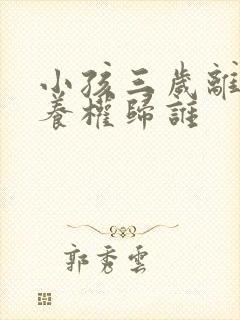 小孩三歲離
養權歸誰
郭秀雲